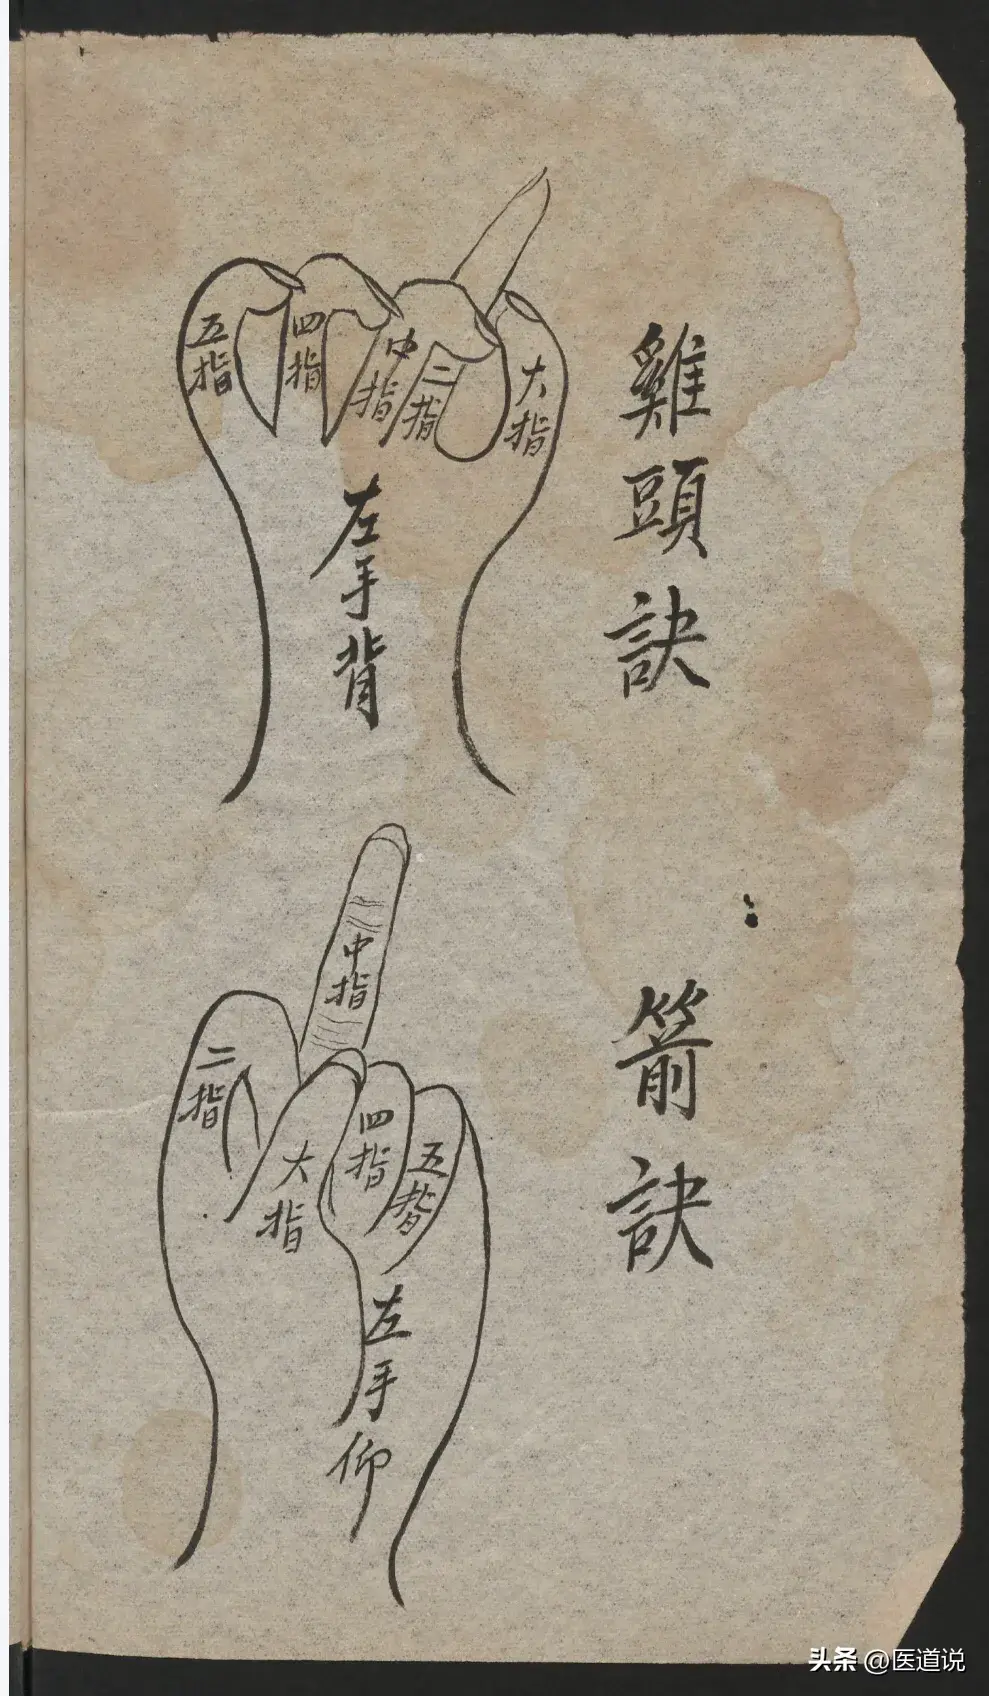 雞頭訣
五指
四指
中指
二指
大指
左手背
箭訣
中指
二指
大指
四指
五指
左手仰
头条 @医道说